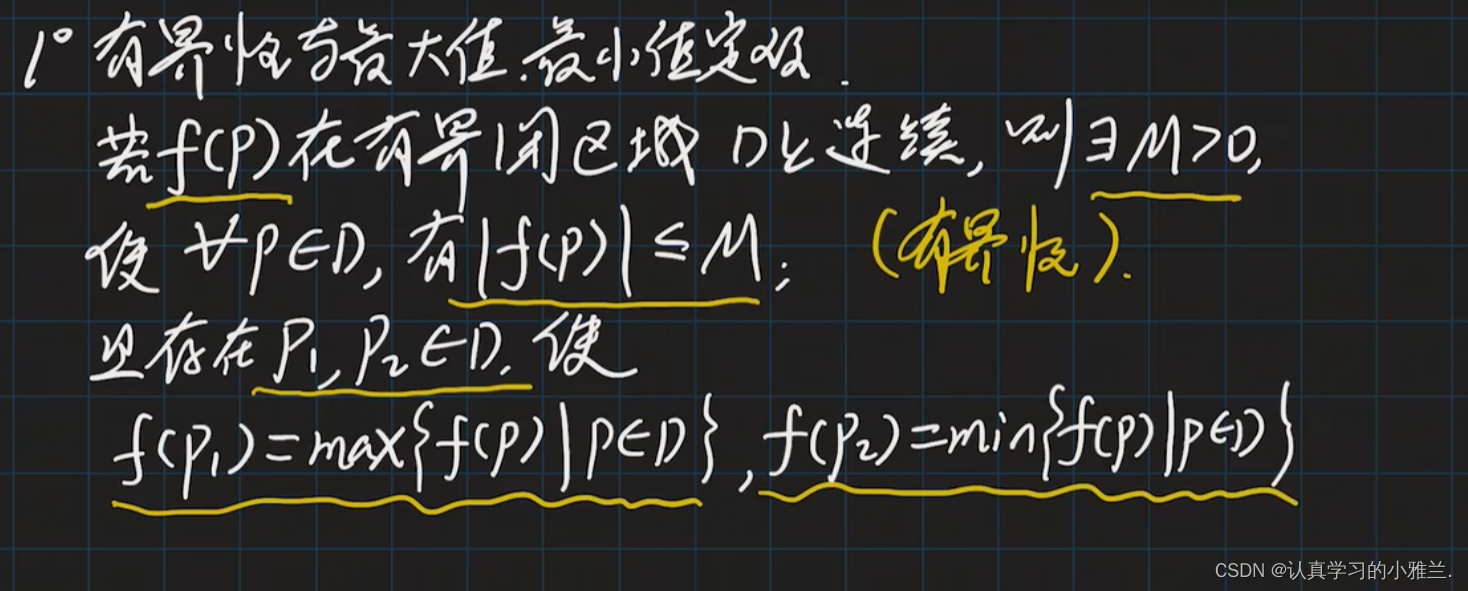 1° 有界性与最大值、最小值定理.
若f(P)在有界闭区域D上连续,则∃M>0,
使∀P∈D,有|f(P)|≤M; (有界性).
且存在P₁,P₂∈D,使
f(P₁)=max{f(P)|P∈D},f(P₂)=min{f(P)|P∈D}
CSDN @认真学习的小雅兰.